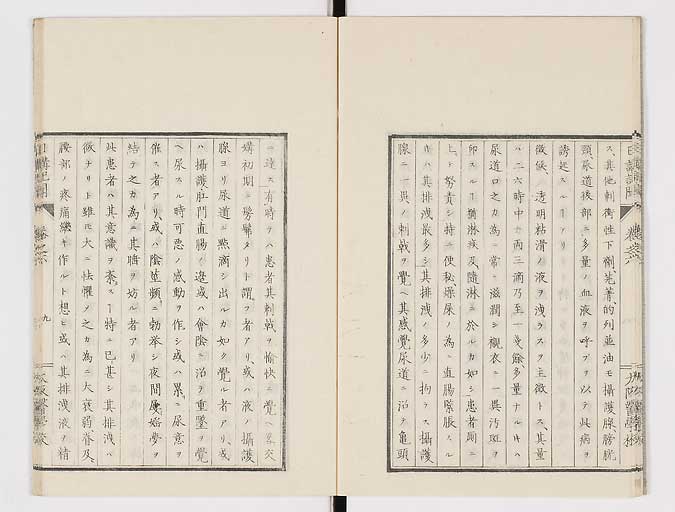 ス其他刺衝性下剤芫菁的列並油モ攝護腺、膀胱
頸、尿道後部ニ多量ノ血液ヲ呼ブヲ以テ此病ヲ
誘起スルーアリ
徴候、透明粘滑ノ液ヲ洩ラスヲ主徴トス其量
ハ二六時中ニ両三滴乃至一餘多量ナルキハ
尿道口之カ為ニ常ニ滋潤シ襯衣ニ一異汚斑ヲ
印スルー猶淋疾及隨淋ニ於ルカ如シ患者厠ニ
上ト努責シ特ニ便秘燥屎ノ為ニ直腸膨脹スル
キハ其排洩最多シ其排洩ノ多少ニ拘ラス攝護
腺ニ一異ノ刺戟ヲ覺ヘ其感覺尿道ニ沿テ亀頭
ニ達ス有時ヲハ患者其刺戟ヲ愉快ニ覺ヘ畧交
媾初期ニ髣髴タリト謂フ者アリ或ハ液ノ攝護
腺ヨリ尿道ニ點滴シ出ルカ如ク覺ル者アリ、或
ハ攝護肛門直腸ノ邊或ハ會陰ニ沿テ重墜ヲ覺
ヘ尿スル時可悪ノ感動ヲ作シ或ハ累ニ尿意ヲ
催ス者アリ、或ハ陰莖頻ニ勃挙シ夜間屢始夢ヲ
結テ之カ為ニ其睛ヲ妨ル者アリ
此患者ハ其意識ヲ奈スー特ニ已甚シ其排洩ハ
微ナリト雖モ大ニ怯懼ノ之カ為ニ大衰弱脊及
腰部ノ疼痛等作ルト想ヒ或ハ其排洩液ノ精
日講記聞
九
大阪醫學校